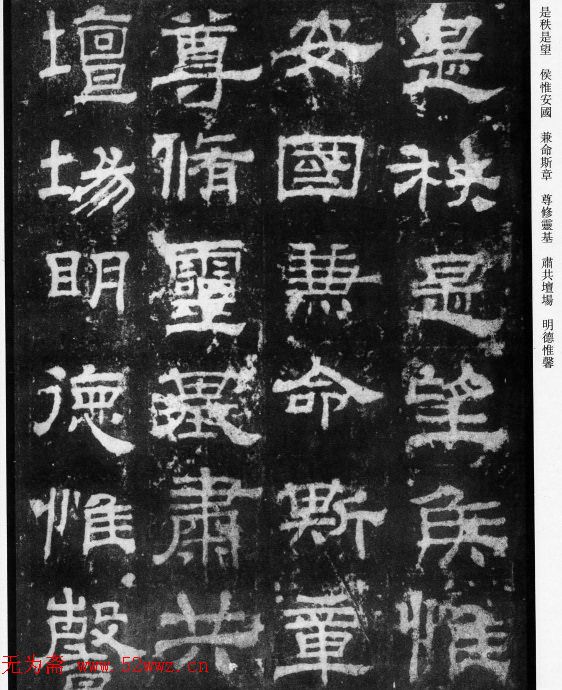 是秩是望 侯惟安國 兼命斯章 尊修靈基 肅共壇場 明德惟馨
是秩是望侯惟
安國兼命斯章
尊脩靈基肅共
壇場明德惟馨
无为斋 www.52wwz.cn